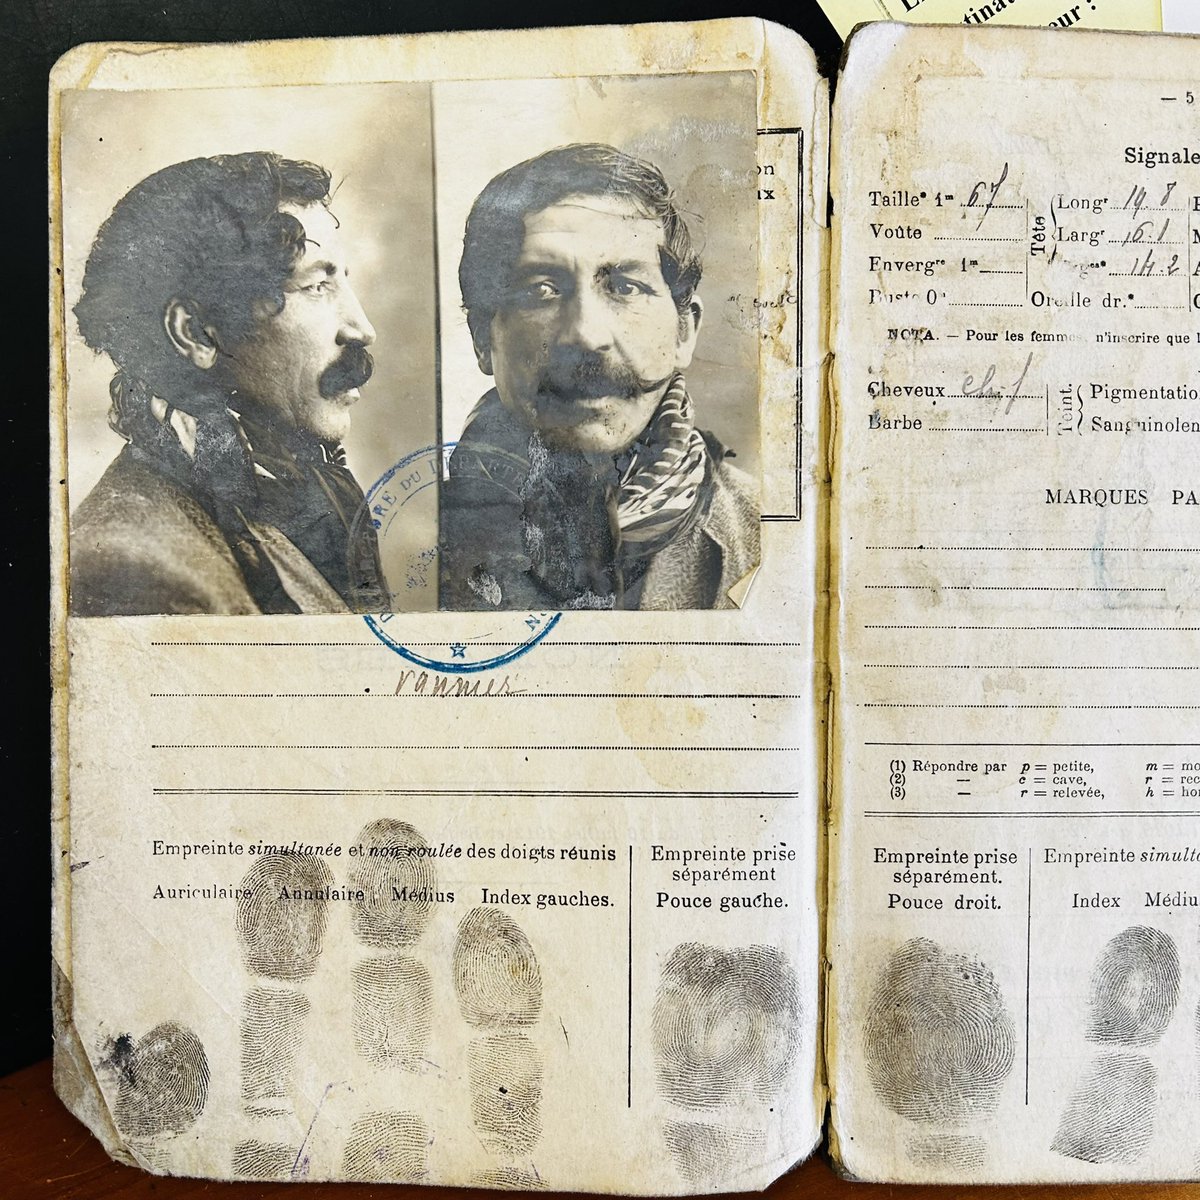 tinat
eur ?
on
ux
vannier
Empreinte simultanée et non roulée des doigts réunis
Auriculaire Annulaire Médius Index gauches.
Empreinte prise
séparément
Pouce gauche.
— 5
Signale
Taille 1m 67
Voûte
Envergre 1m
Buste 0
Tête
Longr 19.8
Largr 16.1
14.2
Oreille dr.
NOTA. — Pour les femmes n'inscrire que l
Cheveux
Barbe
Teint.
Pigmentatio
Sanguinolen
MARQUES PA
(1) Répondre par p = petite, m = mo
(2) — c = cave, r = rec
(3) — r = relevée, h = hor
Empreinte prise
séparément.
Pouce droit.
Empreinte simulta
Index Médiu